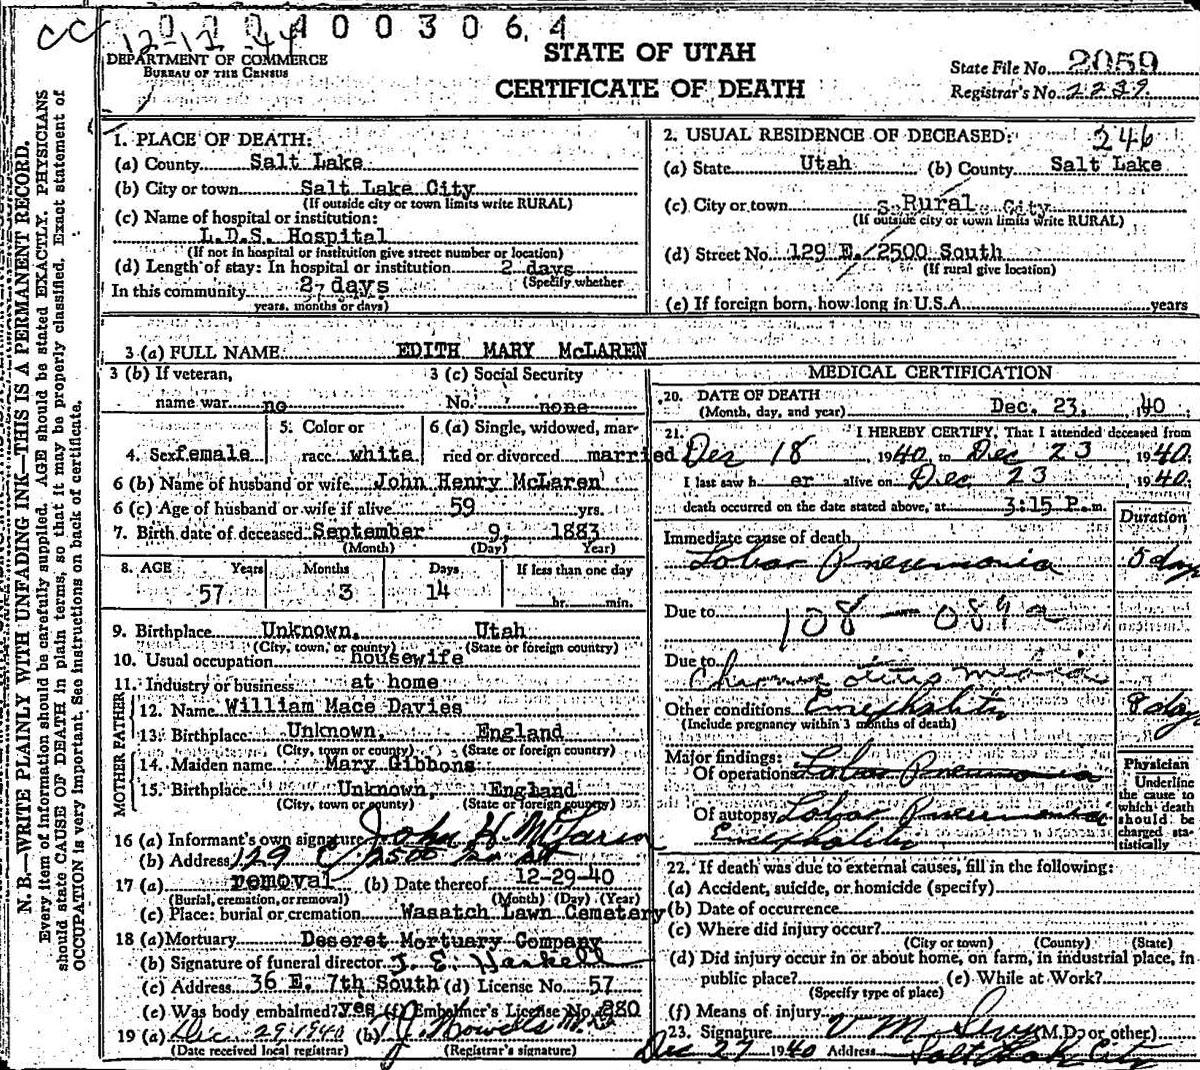 CC
0 0 0 4 0 0 3 0 6 4
12-11-44
DEPARTMENT OF COMMERCE
BUREAU OF THE CENSUS
STATE OF UTAH
CERTIFICATE OF DEATH
State File No. 2059
Registrar's No. 2239
N. B.—WRITE PLAINLY WITH UNFADING INK—THIS IS A PERMANENT RECORD.
Every item of information should be carefully supplied. AGE should be stated EXACTLY. PHYSICIANS
should state CAUSE OF DEATH in plain terms, so that it may be properly classified. Exact statement of
OCCUPATION is very important. See instructions on back of certificate.
1. PLACE OF DEATH:
(a) County Salt Lake
(b) City or town Salt Lake City
(If outside city or town limits write RURAL)
(c) Name of hospital or institution:
L.D.S. Hospital
(If not in hospital or institution give street number or location)
(d) Length of stay: In hospital or institution 2 days
(Specify whether
In this community 2 days
years, months or days)
2. USUAL RESIDENCE OF DECEASED: 246
(a) State Utah (b) County Salt Lake
(c) City or town S. Rural City
(If outside city or town limits write RURAL)
(d) Street No. 129 E. 2500 South
(If rural give location)
(e) If foreign born, how long in U.S.A. years
3 (a) FULL NAME EDITH MARY McLAREN
3 (b) If veteran,
name war no
3 (c) Social Security
No. none
4. Sex female
5. Color or
race white
6 (a) Single, widowed, mar-
ried or divorced married
6 (b) Name of husband or wife John Henry McLaren
6 (c) Age of husband or wife if alive 59 yrs.
7. Birth date of deceased September 9, 1883
(Month) (Day) Year)
8. AGE Years Months Days If less than one day
57 3 14 hr. min.
9. Birthplace Unknown, Utah
(City, town, or county) (State or foreign country)
10. Usual occupation housewife
11. Industry or business at home
FATHER
12. Name William Mace Davies
13. Birthplace Unknown, England
(City, town or county) (State or foreign country)
MOTHER
14. Maiden name Mary Gibbons
15. Birthplace Unknown, England
(City, town or county) (State or foreign country)
16 (a) Informant's own signature John H McLaren
(b) Address 129 E 2500 So St
17 (a) removal (b) Date thereof 12-29-40
(Burial, cremation, or removal) (Month) (Day) (Year)
(c) Place: burial or cremation Wasatch Lawn Cemetery
18 (a) Mortuary Deseret Mortuary Company
(b) Signature of funeral director J. E. Haskell
(c) Address 36 E. 7th South (d) License No. 57
(e) Was body embalmed? yes (f) Embalmer's License No. 280
19 (a) Dec. 29 1940 (b)
(Date received local registrar) (Registrar's signature)
MEDICAL CERTIFICATION
20. DATE OF DEATH
(Month, day, and year) Dec. 23, 1940
21. I HEREBY CERTIFY, That I attended deceased from
Dec 18 1940, to Dec 23 1940.
I last saw h er alive on Dec 23 1940.
death occurred on the date stated above, at 3:15 P.m.
Duration
Immediate cause of death
Lobar Pneumonia 5 day
Due to 108 — 089a
Due to
Chronic otitis media
Other conditions Encephalitis 8 day
(Include pregnancy within 3 months of death)
Major findings:
Of operations Lobar Pneumonia
Of autopsy Lobar Pneumonia
Encephalitis
Physician
Underline
the cause to
which death
should be
charged sta-
tistically
22. If death was due to external causes, fill in the following:
(a) Accident, suicide, or homicide (specify)
(b) Date of occurrence
(c) Where did injury occur?
(City or town) (County) (State)
(d) Did injury occur in or about home, on farm, in industrial place, in
public place? (e) While at Work?
(Specify type of place)
(f) Means of injury
23. Signature V M (M.D. or other)
Dec 27 1940 Address Salt Lake City